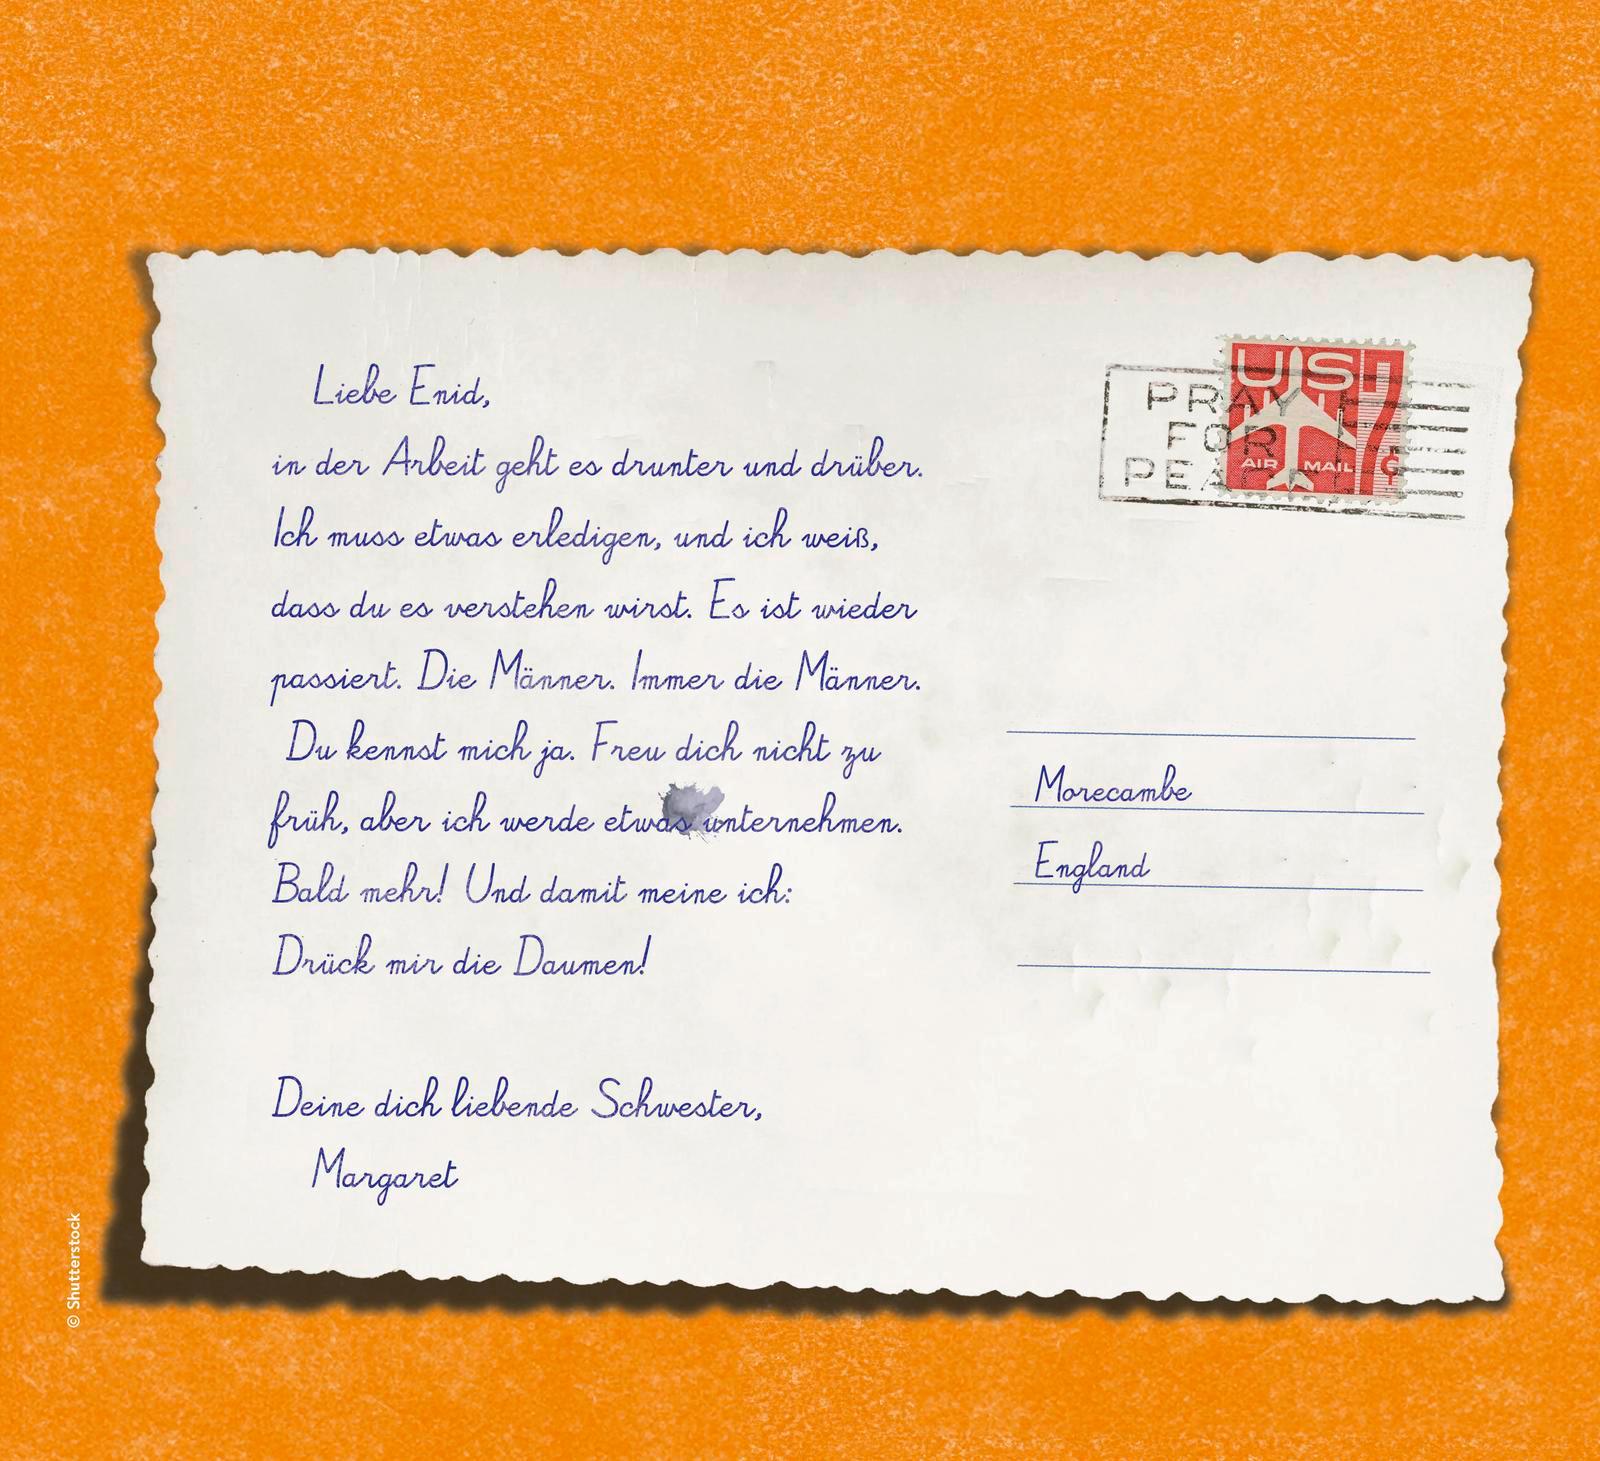 Liebe Enid,
in der Arbeit geht es drunter und drüber.
Ich muss etwas erledigen, und ich weiß,
dass du es verstehen wirst. Es ist wieder
passiert. Die Männer. Immer die Männer.
Du kennst mich ja. Freu dich nicht zu
früh, aber ich werde etwas unternehmen.
Bald mehr! Und damit meine ich:
Drück mir die Daumen!
Deine dich liebende Schwester,
Margaret
PRAY
FOR
PEACE
US
7¢
AIR MAIL
Morecambe
England
© Shutterstock